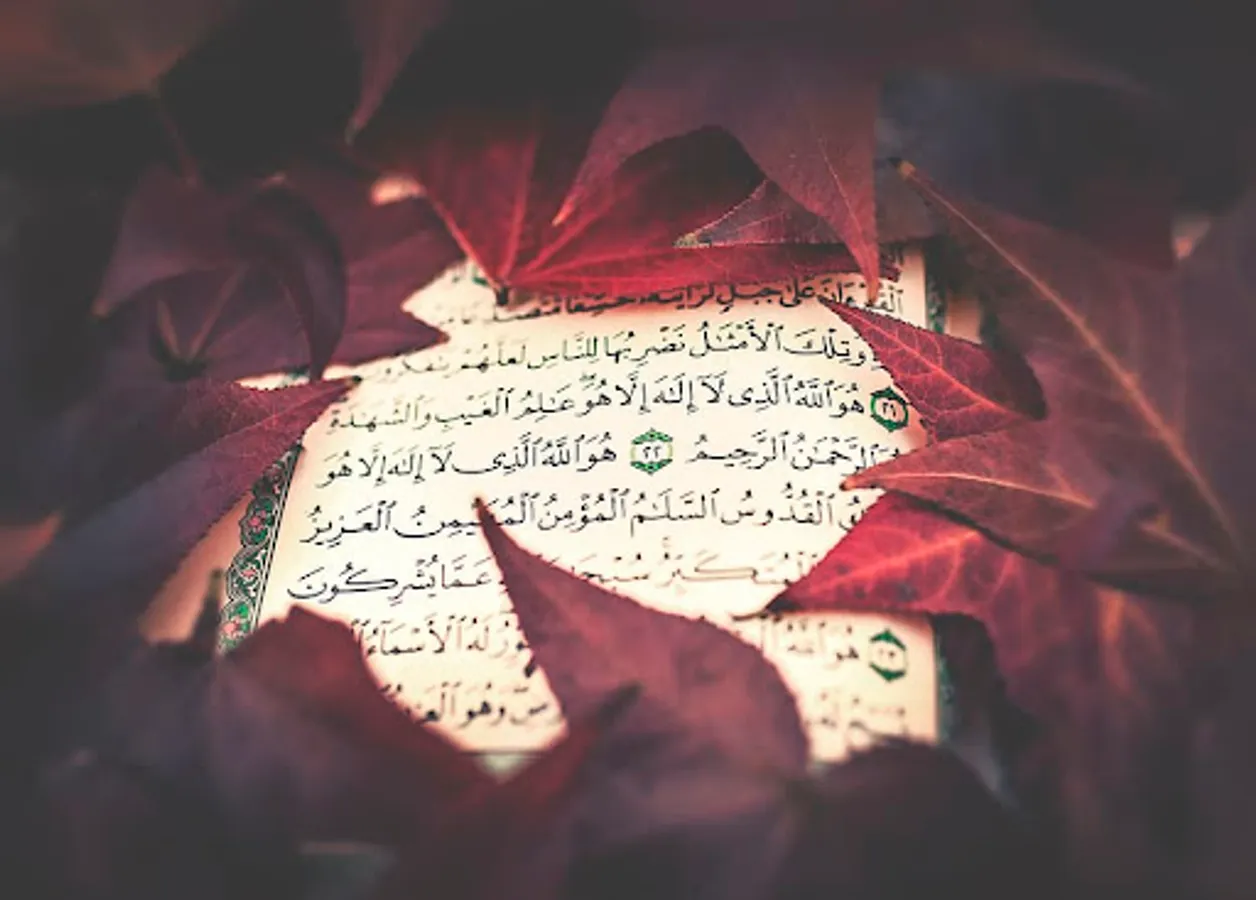 عَلَىٰ جَبَلٍ لَّرَأَيْتَهُۥ خَٰشِعًا
وَتِلْكَ ٱلْأَمْثَٰلُ نَضْرِبُهَا لِلنَّاسِ لَعَلَّهُمْ
٢١ هُوَ ٱللَّهُ ٱلَّذِى لَآ إِلَٰهَ إِلَّا هُوَ ۖ عَٰلِمُ ٱلْغَيْبِ وَٱلشَّهَٰدَةِ
ٱلرَّحْمَٰنُ ٱلرَّحِيمُ ٢٢ هُوَ ٱللَّهُ ٱلَّذِى لَآ إِلَٰهَ إِلَّا هُوَ
ٱلْقُدُّوسُ ٱلسَّلَٰمُ ٱلْمُؤْمِنُ ٱلْمُهَيْمِنُ ٱلْعَزِيزُ
ٱلْمُتَكَبِّرُ عَمَّا يُشْرِكُونَ
٢٣ هُوَ ٱللَّهُ لَهُ ٱلْأَسْمَآءُ
وَهُوَ